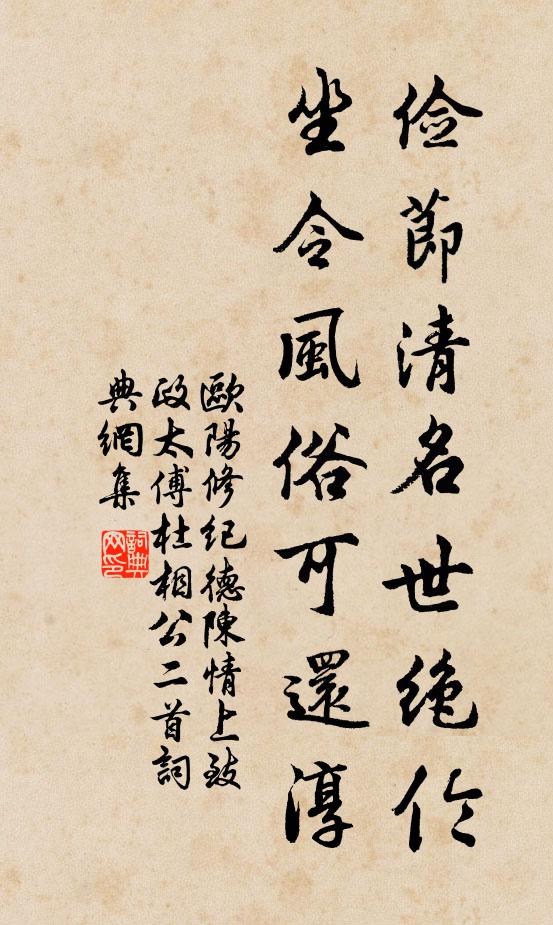 儉節清名世絶伦
坐令風俗可還淳
歐陽修纪德陳情上致
政太傅杜相公二首詞
典網集
詞典
网印